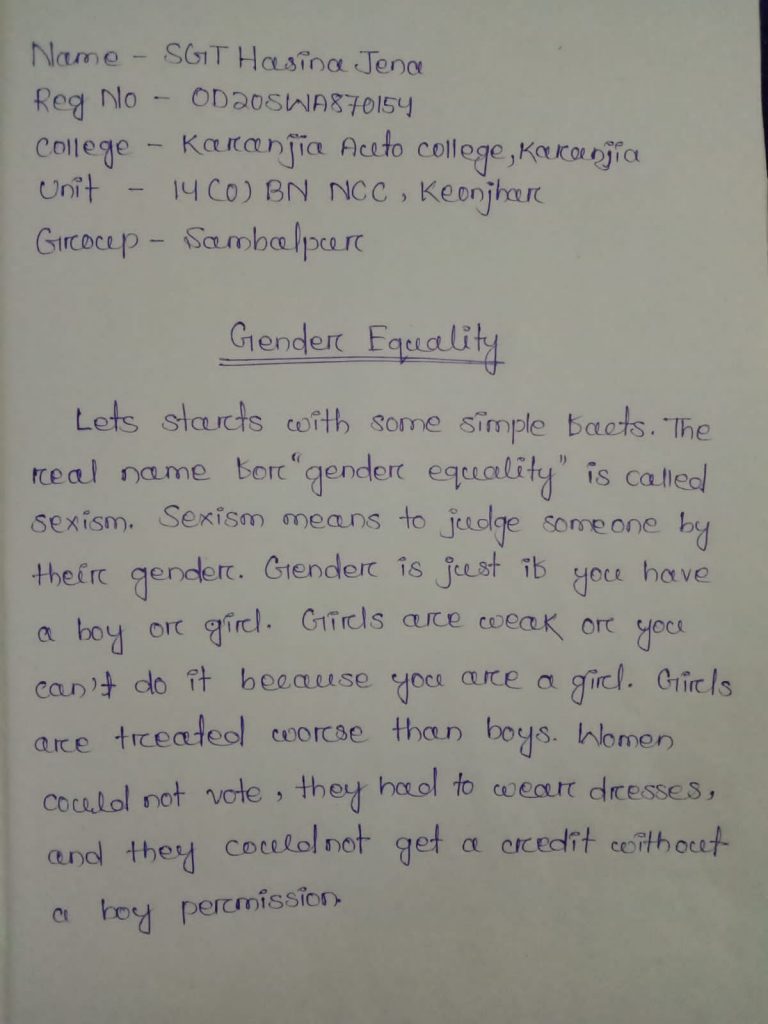 Name - SGT Hasina Jena
Reg No - OD20SWA870154
College - Karanjia Auto college, Karanjia
Unit - 14 (O) BN NCC, Keonjhar
Group - Sambalpur
Gender Equality
Lets starts with some simple facts. The
real name for "gender equality" is called
sexism. Sexism means to judge someone by
their gender. Gender is just if you have
a boy or girl. Girls are weak or you
can't do it because you are a girl. Girls
are treated worse than boys. Women
could not vote, they had to wear dresses,
and they could not get a credit without
a boy permission.